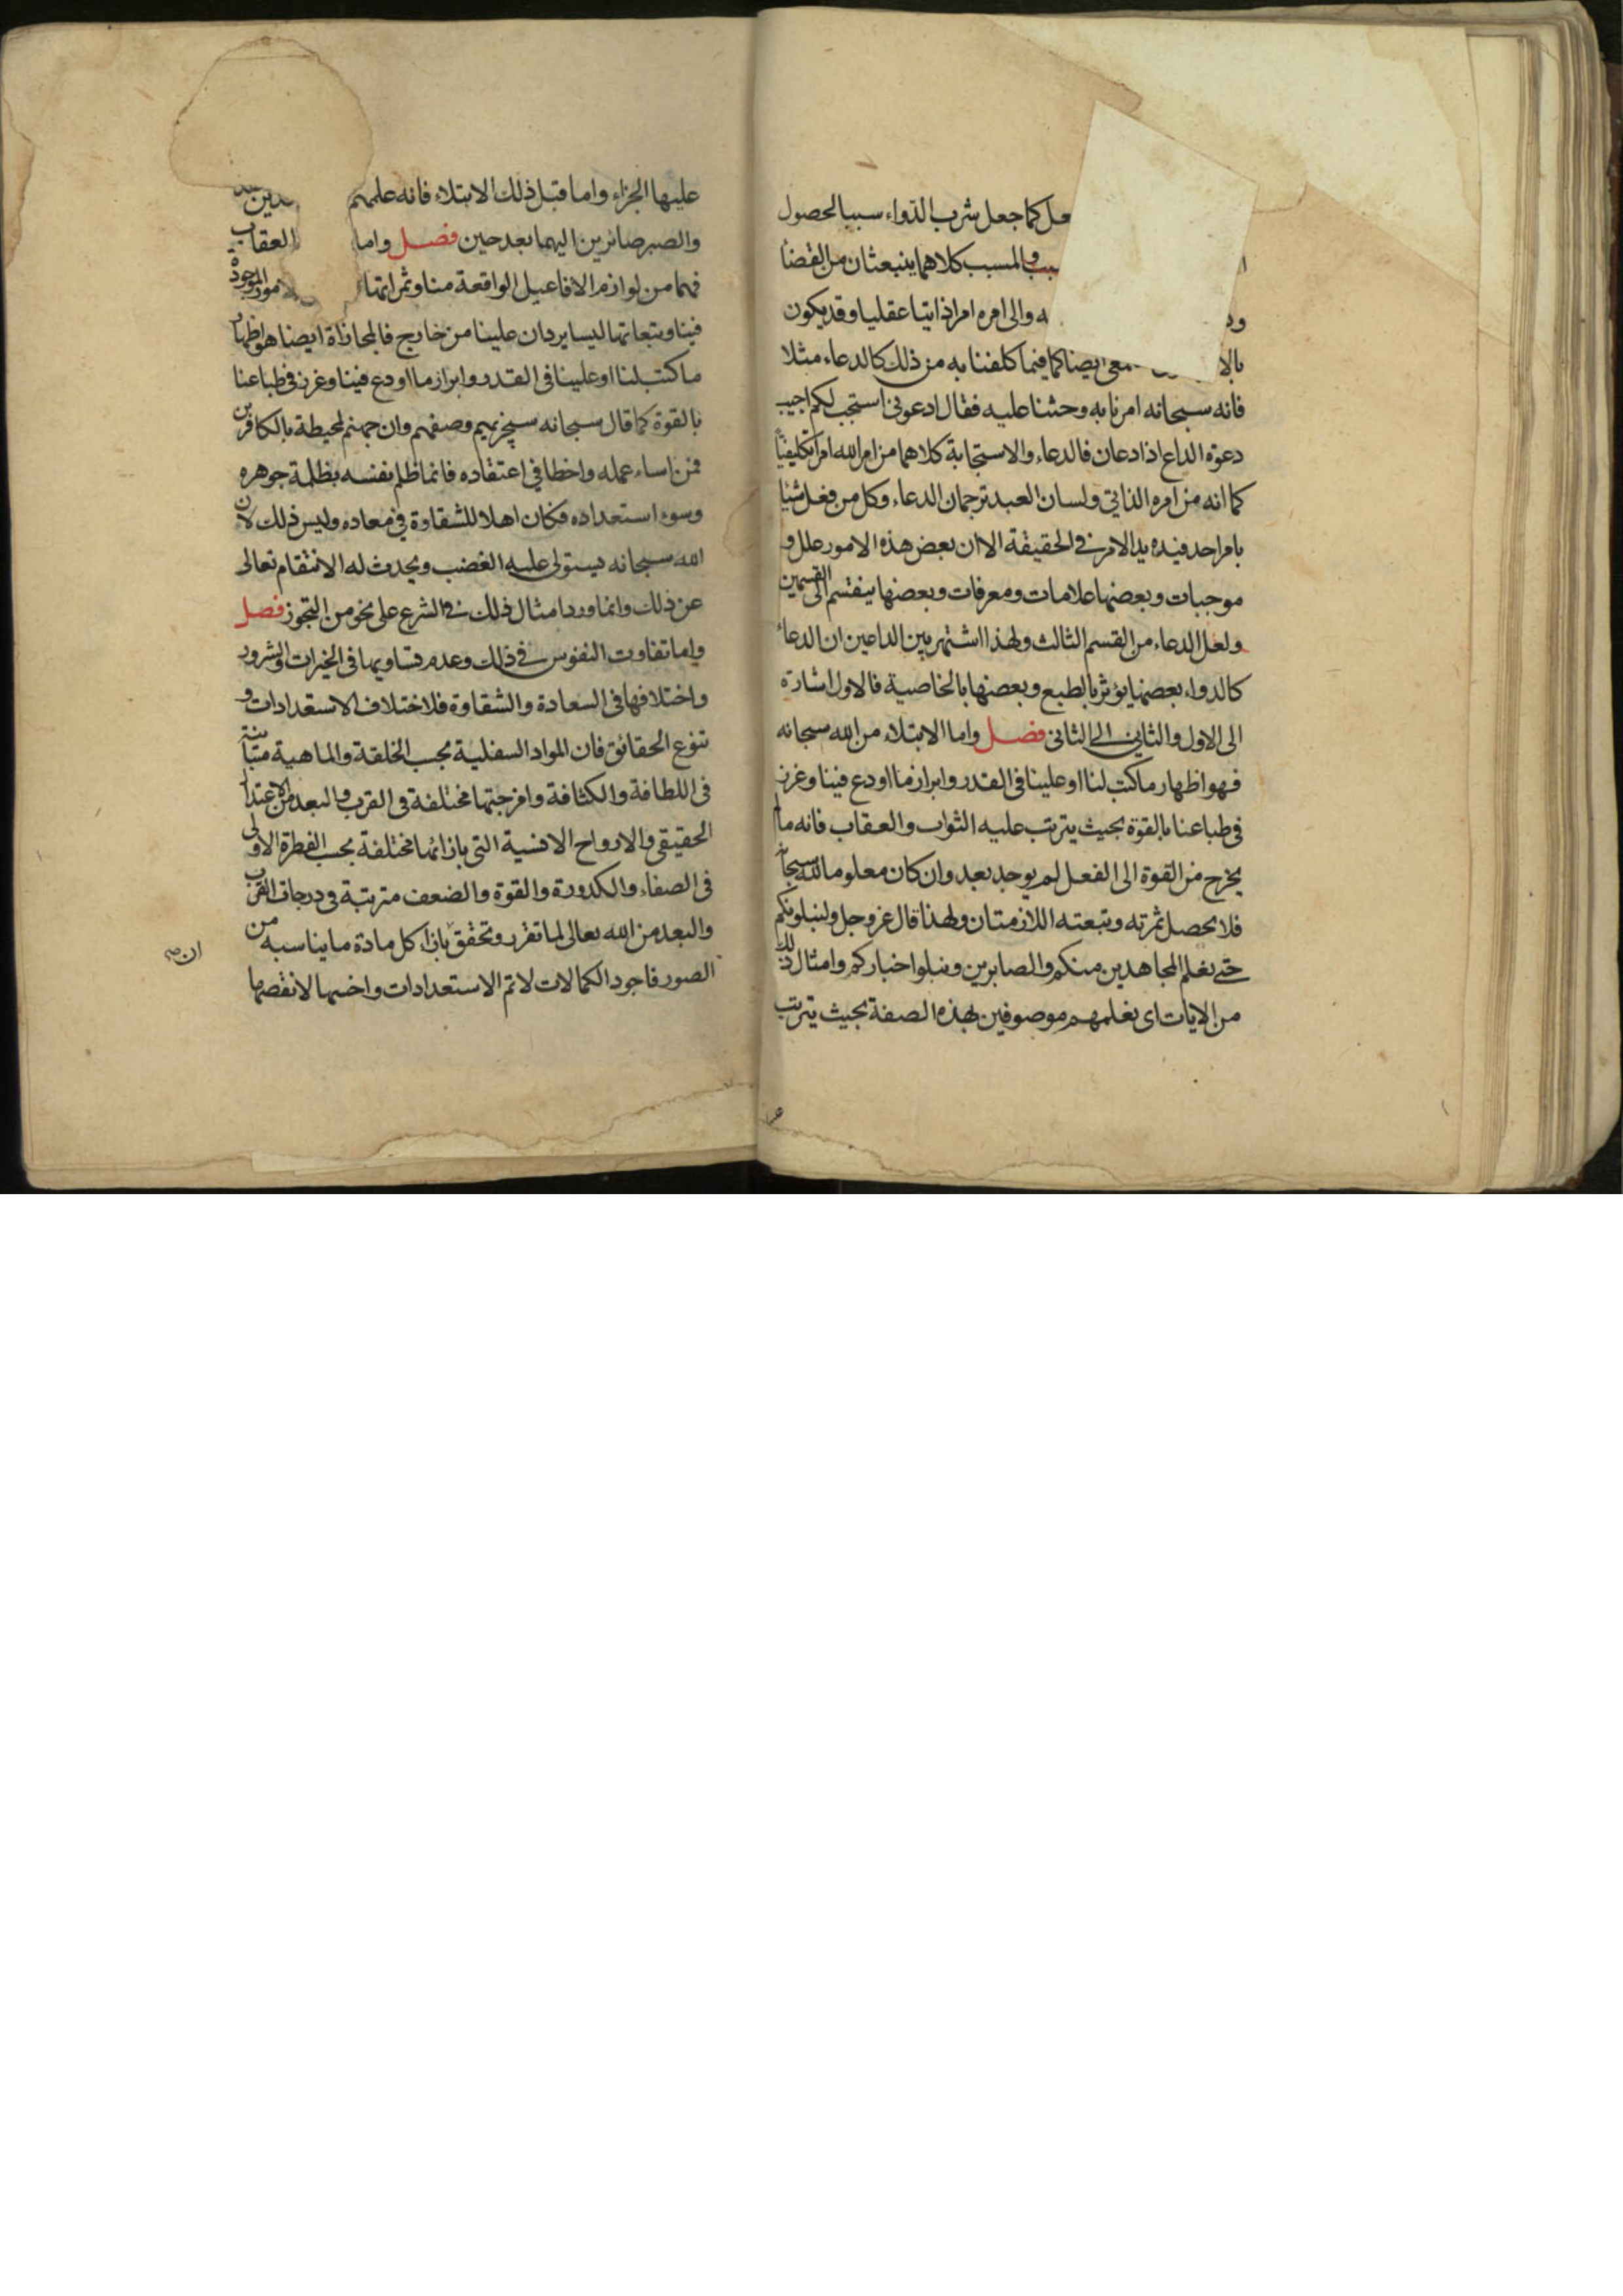 كما جعل شرب الدواء سببا لحصول
والمسبب كلاهما ينبعثان من القضا
والى امره امرا ذاتيا عقليا وقد يكون
ايضا كما فيما كلفنا به من ذلك كالدعاء مثلا
فانه سبحانه امرنا به وحثنا عليه فقال ادعوني استجب لكم اجيب
دعوة الداع اذا دعان فالدعاء والاستجابة كلاهما من امر الله امرا تكليفيا
كما انه من امره الذاتي ولسان العبد ترجمان الدعاء وكل من فعل شيئا
بامر احد فيده يد الامر في الحقيقة الا ان بعض هذه الامور علل و
موجبات وبعضها علامات ومعرفات وبعضها ينقسم الى القسمين
ولعل الدعاء من القسم الثالث ولهذا اشتهر بين الداعين ان الدعاء
كالدواء بعضها يؤثر بالطبع وبعضها بالخاصية فالاول اشارة
الى الاول والثاني الى الثاني فصل واما الابتلاء من الله سبحانه
فهو اظهار ما كتب لنا او علينا في القدر وابراز ما اودع فينا وغرز
في طباعنا بالقوة بحيث يترتب عليه الثواب والعقاب فانه ما لم
يخرج من القوة الى الفعل لم يوجد بعد وان كان معلوما لله سبحا
فلا يحصل ثمرته وتبعته اللازمتان ولهذا قال عز وجل ولنبلونكم
حتى نعلم المجاهدين منكم والصابرين ونبلوا اخباركم وامثال ذلك
من الايات اي نعلمهم موصوفين بهذه الصفة بحيث يترتب
عليها الجزاء واما قبل ذلك الابتلاء فانه علمهم
والصبر صائرين اليهما بعد حين فصل واما العقاب
فهما من لوازم الافاعيل الواقعة منا وثمراتها الموجودة
فينا وتبعاتها ليسا يردان علينا من خارج فالمجازاة ايضا هو اظهار
ما كتب لنا او علينا في القدر وابراز ما اودع فينا وغرز في طباعنا
بالقوة كما قال سبحانه سيجزيهم وصفهم وان جهنم لمحيطة بالكافرين
فمن اساء عمله واخطا في اعتقاده فانما ظلم نفسه بظلمة جوهره
وسوء استعداده فكان اهلا للشقاوة في معاده وليس ذلك لان
الله سبحانه يستولي عليه الغضب ويحدث له الانتقام تعالى
عن ذلك وانما ورد امثال ذلك في الشرع على نحو من التجوز فصل
واما تفاوت النفوس في ذلك وعدم تساويها في الخيرات والشرور
واختلافها في السعادة والشقاوة فلاختلاف الاستعدادات و
تنوع الحقائق فان المواد السفلية بحسب الخلقة والماهية متباينة
في اللطافة والكثافة وامزجتها مختلفة في القرب والبعد من الاعتدال
الحقيقي والارواح الانسية التي بازائها مختلفة بحسب الفطرة الاولى
في الصفاء والكدورة والقوة والضعف مترتبة في درجات القرب
والبعد من الله تعالى لما تقرر وتحقق بازاء كل مادة ما يناسبه من
الصور فاجود الكمالات لاتم الاستعدادات واخسها لانقصها